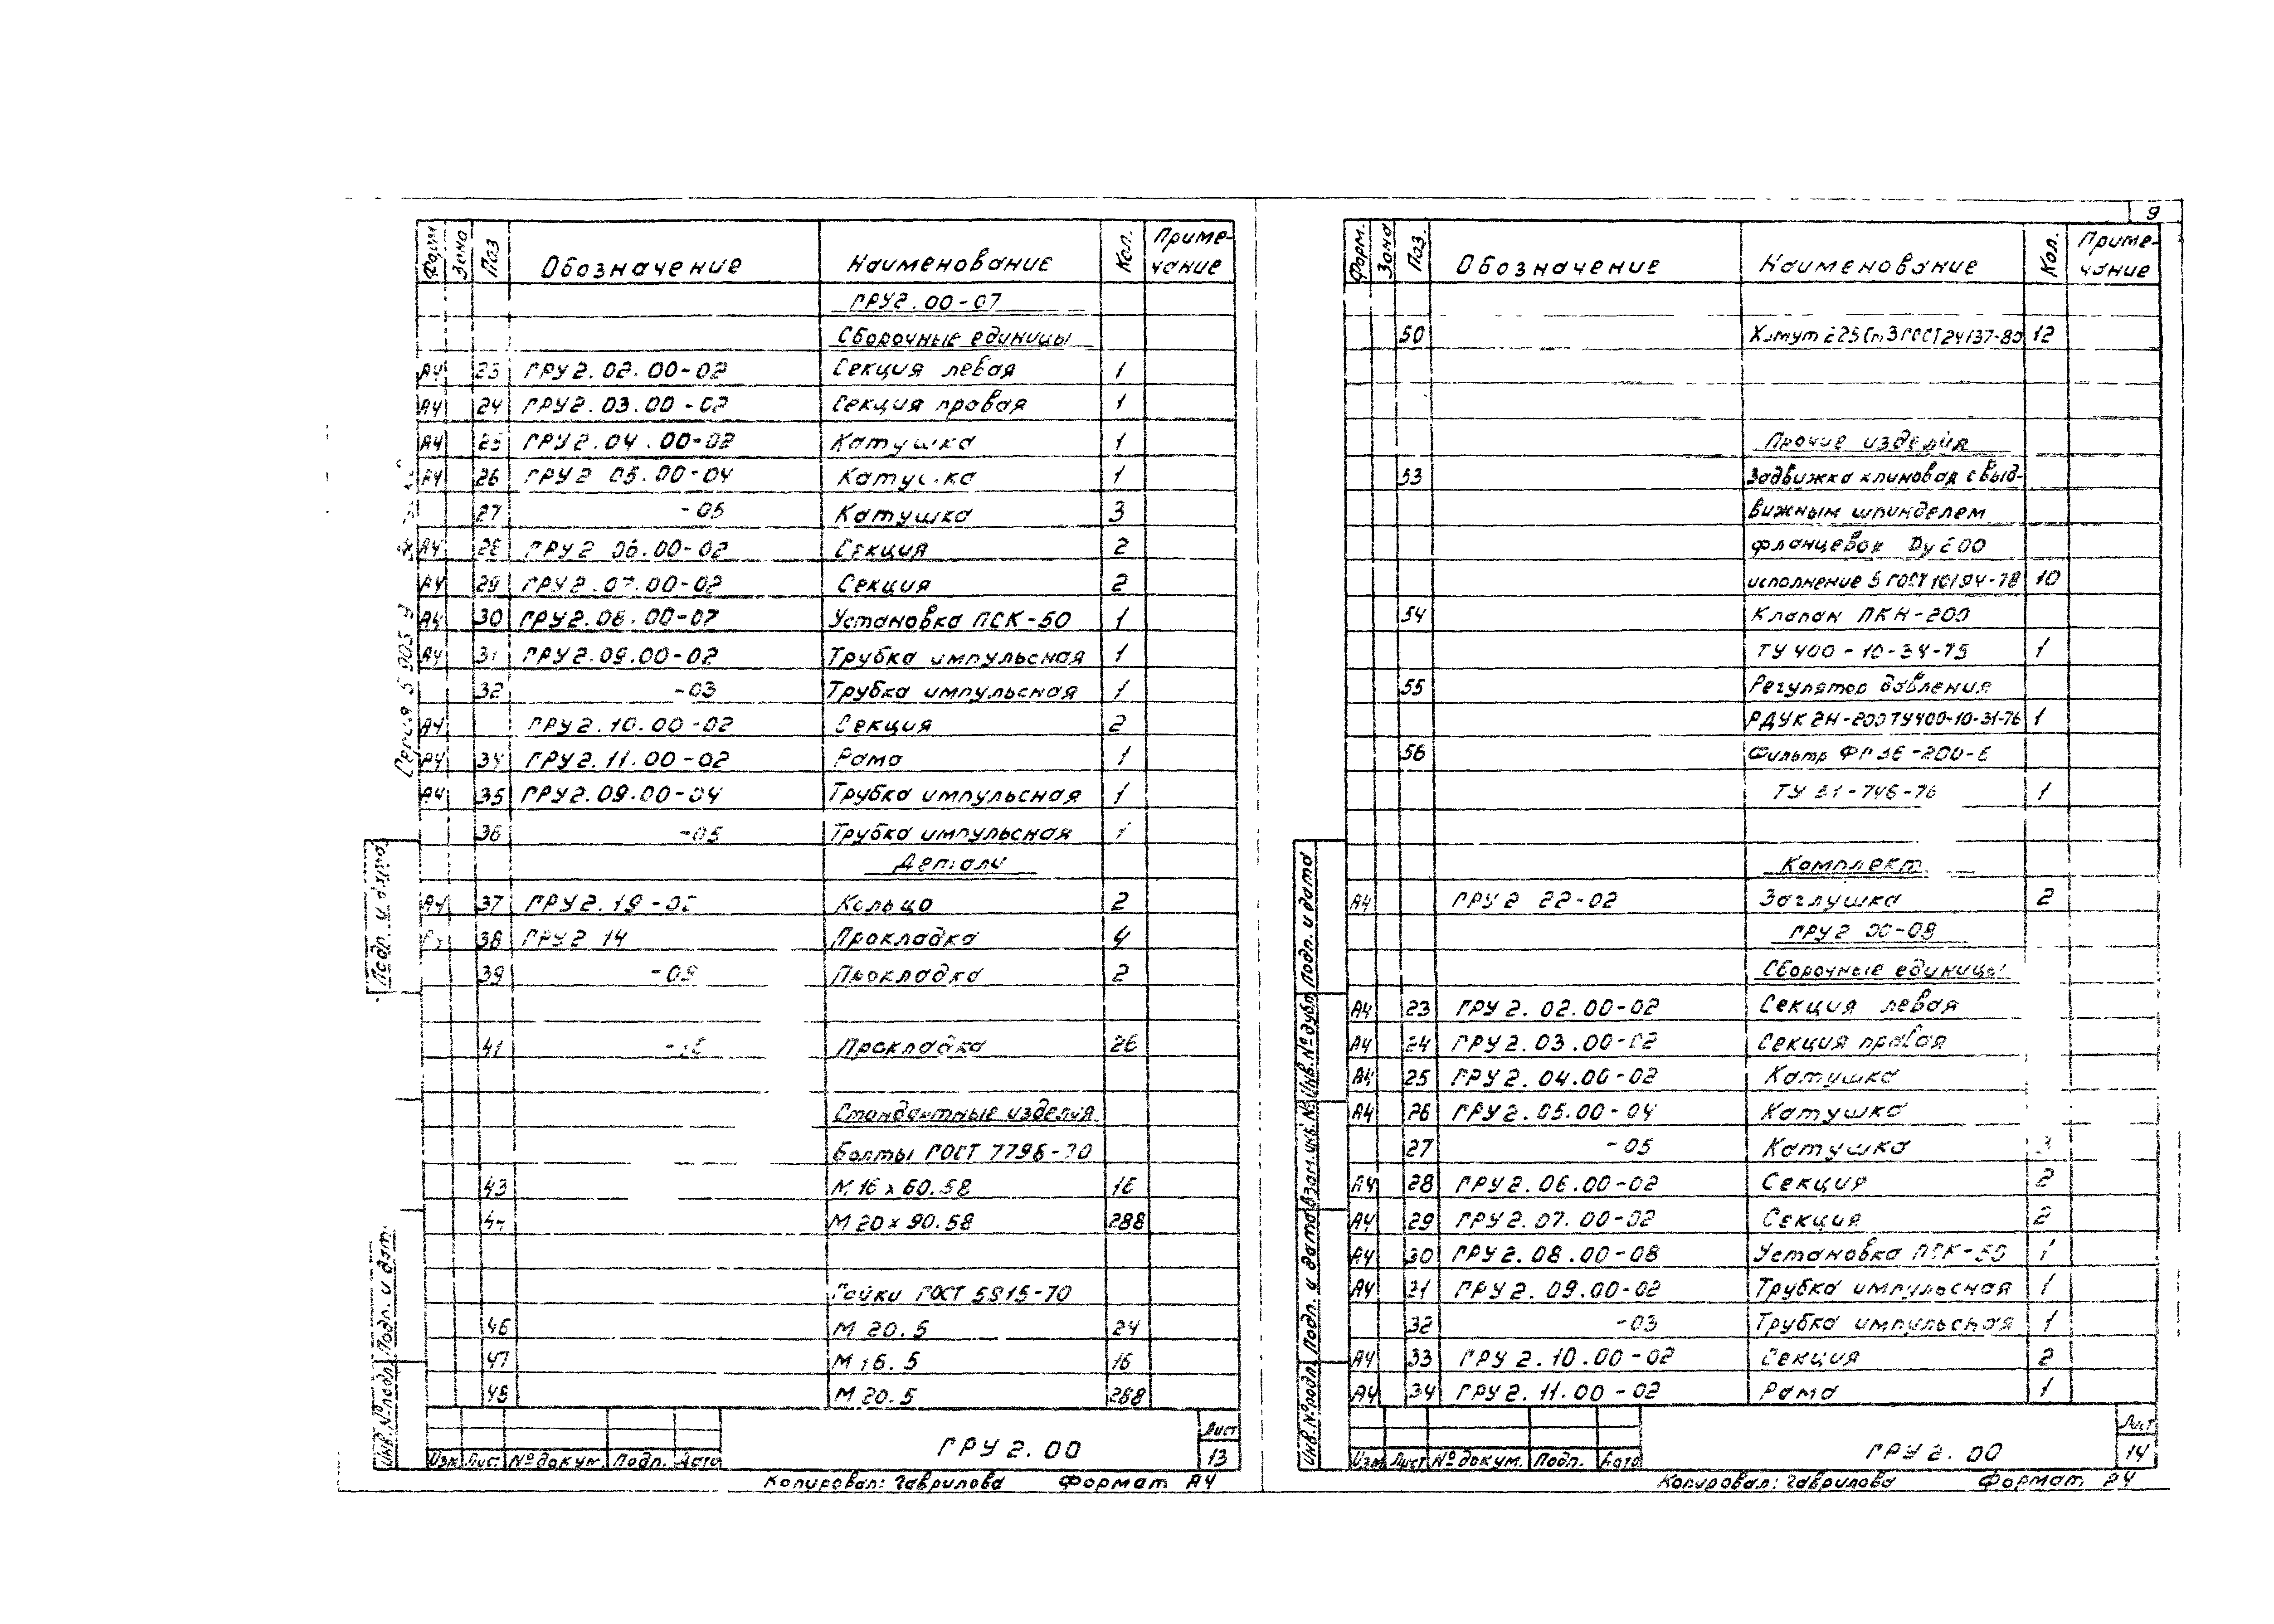 Форм Зона Поз Обозначение Наименование Кол. Приме-
чание
ГРУ2.00-07
Сборочные единицы
А4 23 ГРУ2.02.00-02 Секция левая 1
А4 24 ГРУ2.03.00-02 Секция правая 1
А4 25 ГРУ2.04.00-02 Катушка 1
А4 26 ГРУ2 05.00-04 Катушка 1
27 -05 Катушка 3
А4 28 ГРУ2 06.00-02 Секция 2
А4 29 ГРУ2.07.00-02 Секция 2
А4 30 ГРУ2.08.00-07 Установка ПСК-50 1
А4 31 ГРУ2.09.00-02 Трубка импульсная 1
32 -03 Трубка импульсная 1
А4 ГРУ2.10.00-02 Секция 2
А4 34 ГРУ2.11.00-02 Рама 1
А4 35 ГРУ2.09.00-04 Трубка импульсная 1
36 -05 Трубка импульсная 1
Детали
А4 37 ГРУ2.19 Кольцо 2
38 ГРУ2 14 Прокладка 4
39 -09 Прокладка 2
41 Прокладка 26
Стандартные изделия
Болты ГОСТ 7796-70
43 М16х60.58 16
М20х90.58 288
Гайки ГОСТ 5915-70
46 М 20.5 24
47 М 16.5 16
48 М 20.5 288
Изм Лист №докум. Подп. Дата ГРУ2.00 Лист
13
Копировал: Гаврилова Формат А4
Серия 5 905
Подп. и дата
Подп. и дат.
Инв.№подл.
9
Форм. Зона Поз. Обозначение Наименование Кол. Приме-
чание
50 Хомут 225 Ст3 ГОСТ24137-80 12
Прочие изделия
53 Задвижка клиновая с выд-
вижным шпинделем
фланцевая Ду200
исполнение 5 ГОСТ 10194-78 10
54 Клапан ПКН-200
ТУ 400-10-34-75 1
55 Регулятор давления
РДУК2Н-200 ТУ400-10-31-76 1
56 Фильтр -200-6
ТУ 51-746-76 1
Комплект
А4 ГРУ2 22-02 Заглушка 2
ГРУ2 00-08
Сборочные единицы
А4 23 ГРУ2.02.00-02 Секция левая
А4 24 ГРУ2.03.00-02 Секция правая
А4 25 ГРУ2.04.00-02 Катушка
А4 26 ГРУ2.05.00-04 Катушка
27 -05 Катушка 3
А4 28 ГРУ2.06.00-02 Секция 2
А4 29 ГРУ2.07.00-02 Секция 2
А4 30 ГРУ2.08.00-08 Установка ПСК-50 1
А4 31 ГРУ2.09.00-02 Трубка импульсная 1
32 -03 Трубка импульсная 1
А4 33 ГРУ2.10.00-02 Секция 2
А4 34 ГРУ2.11.00-02 Рама 1
Изм Лист №докум. Подп. Дата ГРУ2.00 Лист
14
Копировал: Гаврилова Формат А4
Подп. и дата
Инв.№дубл.
Взам.инв.№
Подп. и дата
Инв.№подл.